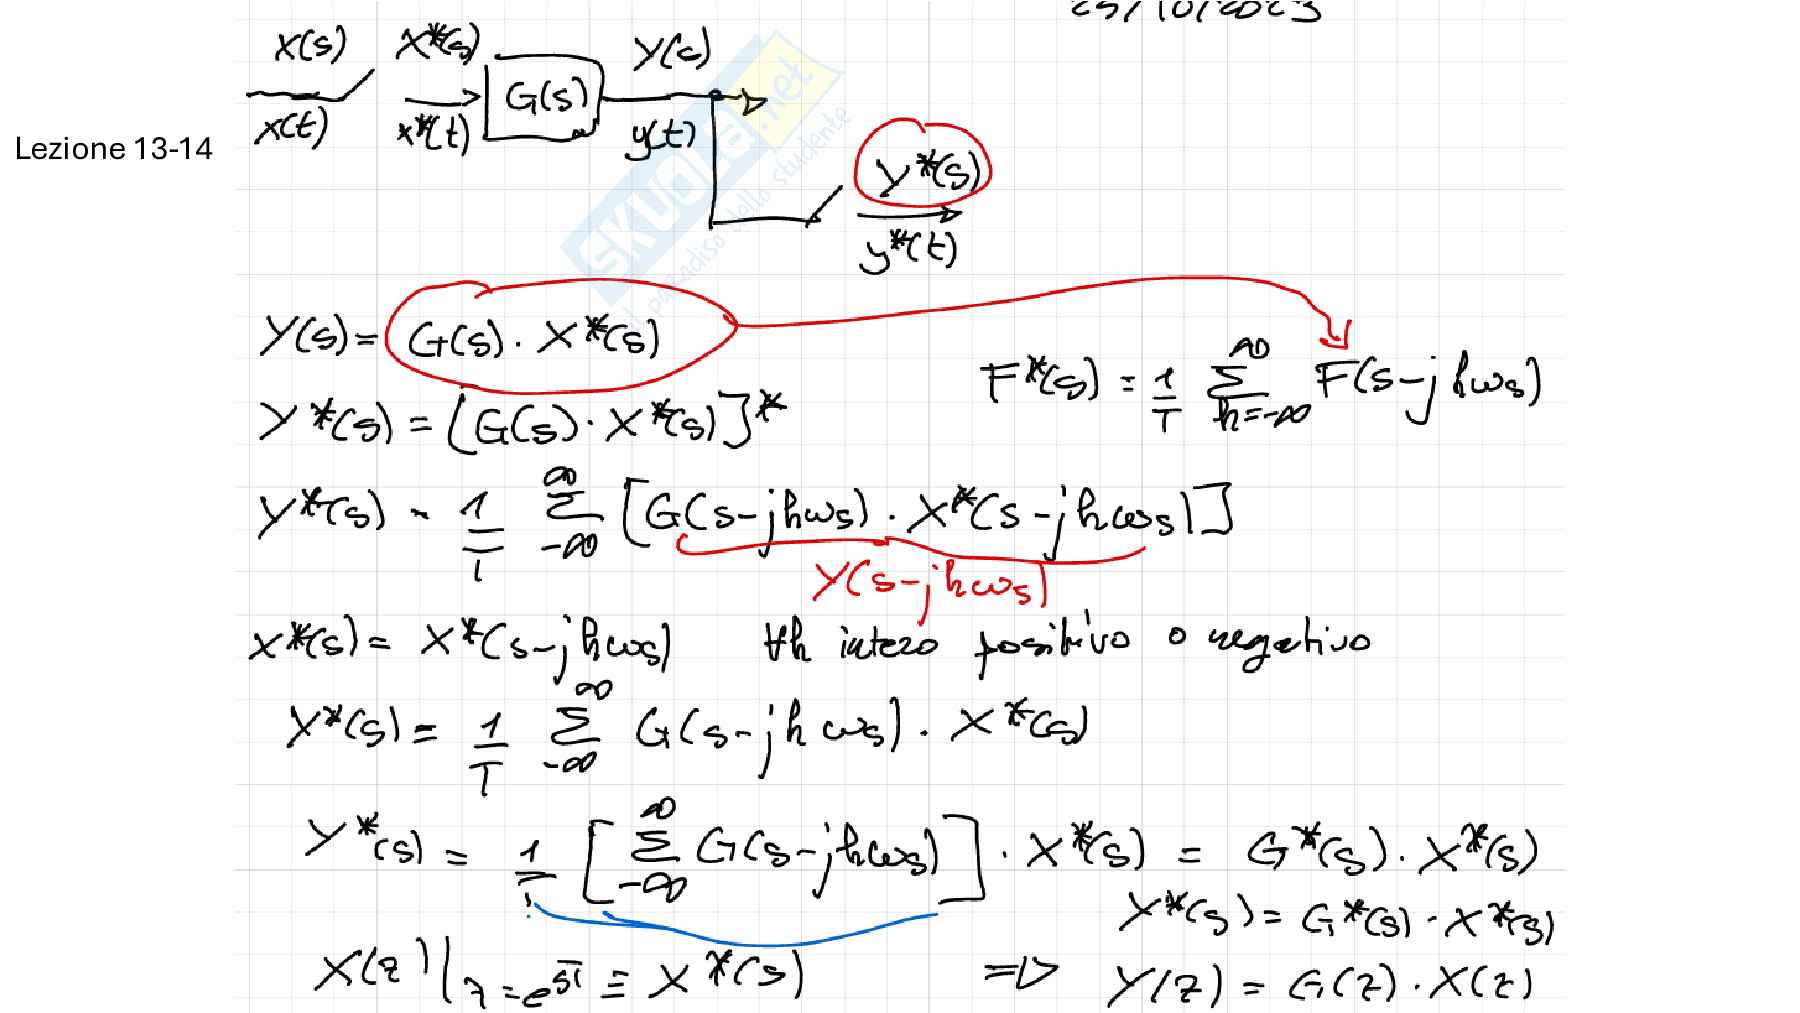 25/10/2023
X(s) X*(s) Y(s)
G(s)
x(t) x*(t) y(t)
Lezione 13-14
Y*(s)
y*(t)
SKUOLA.net
il paradiso dello studente
Y(s) = G(s) · X*(s)
F*(s) = 1/T Σ_{h=-∞}^{∞} F(s-jhωs)
Y*(s) = [G(s) · X*(s)]*
Y*(s) = 1/T Σ_{-∞}^{∞} [G(s-jhωs) · X*(s-jhωs)]
Y(s-jhωs)
X*(s) = X*(s-jhωs) ∀h intero positivo o negativo
Y*(s) = 1/T Σ_{-∞}^{∞} G(s-jhωs) · X*(s)
Y*(s) = 1/T [Σ_{-∞}^{∞} G(s-jhωs)] · X*(s) = G*(s) · X*(s)
Y*(s) = G*(s) · X*(s)
X(z)|_{z=e^{sT}} ≡ X*(s) => Y(z) = G(z) · X(z)